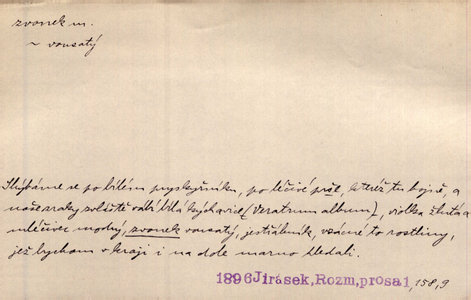 zvonek m.
~ vousatý
Shýbáme se po bílém pryskyřníku, po léčivé prše, kteréž tu hojně, a
naše zraky zvláště vábí bílá kýchavice (Veratrum album), violka žlutá a
mléčivec modrý, zvonek vousatý, jestřábník, vzácné to rostliny,
jež bychom v kraji i na dole marno hledali.
1896 Jirásek, Rozm, prosa 1, 158,9